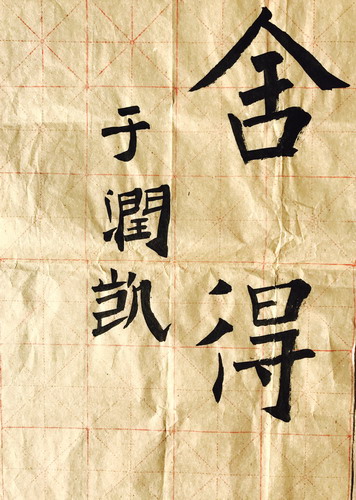 舍得
于潤凯